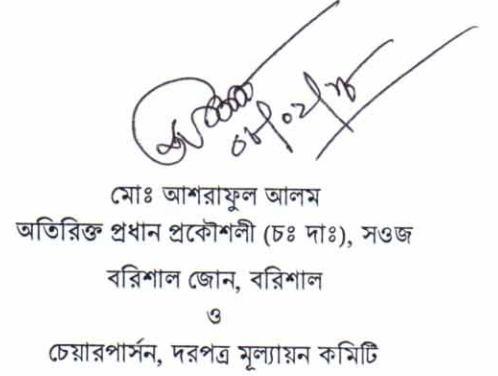 মোঃ আশরাফুল আলম
অতিরিক্ত প্রধান প্রকৌশলী (চঃ দাঃ), সওজ
বরিশাল জোন, বরিশাল
ও
চেয়ারপার্সন, দরপত্র মূল্যায়ন কমিটি